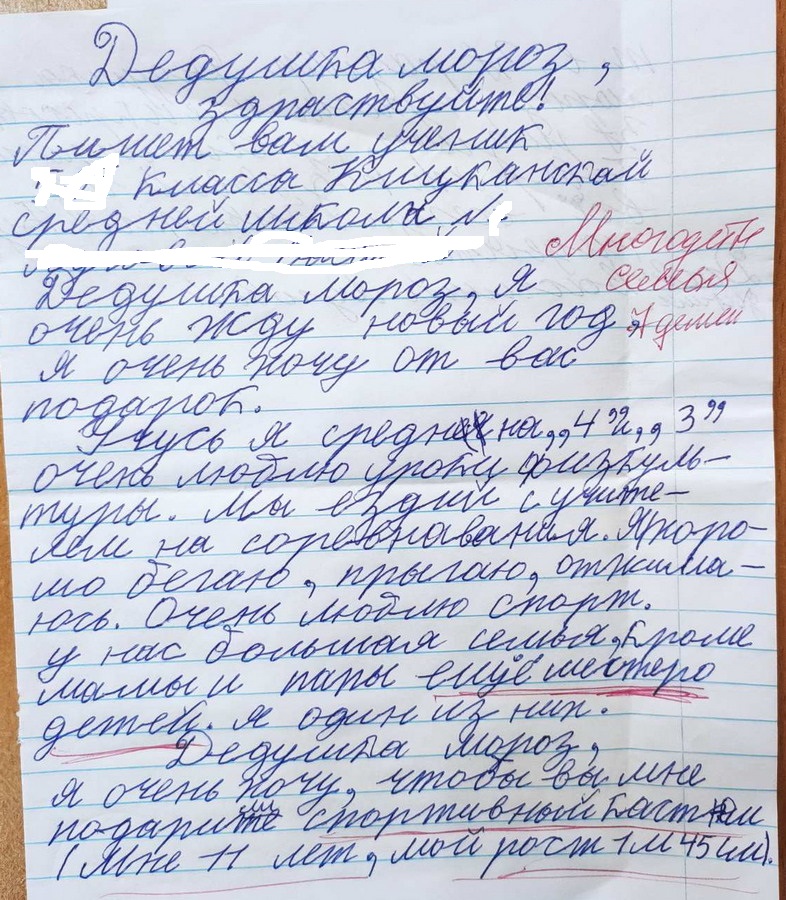 Дедушка мороз,
здраствуйте!
Пишет вам ученик
класса Кицканской
средней школы №
Многодетн
Дедушка мороз, я
семья
очень жду новый год,
7 детей
я очень хочу от вас
подарок.
Учусь я средне на „4” и „3”
очень люблю уроки физкуль-
туры. Мы ездий с учите-
лем на соревнавания. Я хоро-
шо бегаю, прыгаю, отжима-
юсь. Очень люблю спорт.
у нас большая семья, кроме
мамы и папы ещё шестеро
детей. я один из них.
Дедушка мороз,
я очень хочу, чтобы вы мне
подарили спортивный кастюм
(Мне 11 лет, мой рост 1 м 45 см).